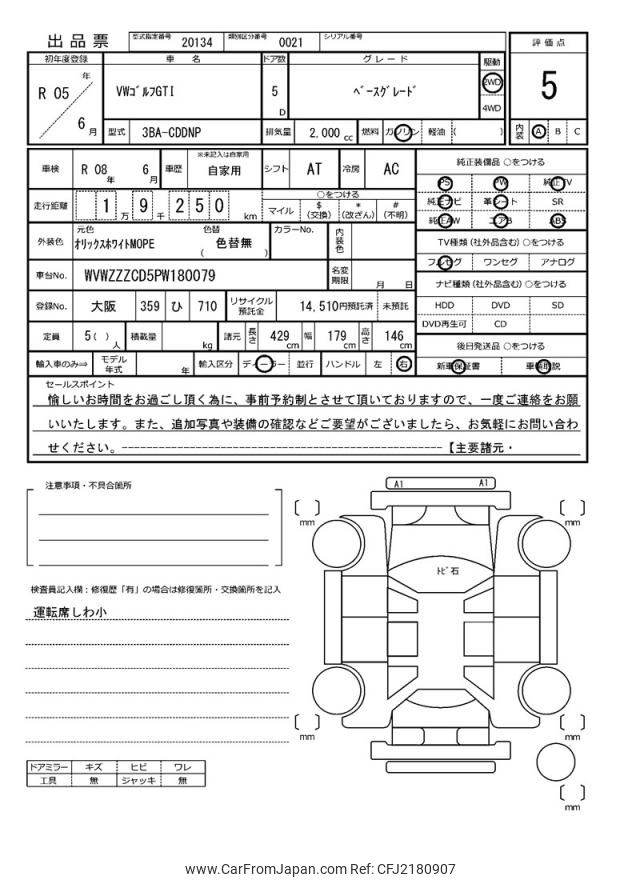 出品票 型式指定番号 20134 類別区分番号 0021 シリアル番号
評価点
5
内装 A B C
初年度登録 車名 ドア数 グレード 駆動
R 05 年 6 月
VWｺﾞﾙﾌGTI 5 D ﾍﾞｰｽｸﾞﾚｰﾄﾞ 2WD
4WD
型式 3BA-CDDNP 排気量 2,000 cc 燃料 ガソリン 軽油 ( )
車検 R 08 年 6 月 車歴 ※未記入は自家用 自家用 シフト AT 冷房 AC
走行距離 1 万 9 千 2 5 0 km
○をつける
マイル $ (交換) * (改ざん) # (不明)
外装色 元色 ｵﾘｯｸｽﾎﾜｲﾄMOPE 色替 ( 色替無 ) カラーNo. 内装色
車台No. WVWZZZCD5PW180079 名変期限 月 日
登録No. 大阪 359 ひ 710 リサイクル預託金 14,510円預託済 未預託
定員 5( )人 積載量 kg 諸元 長さ 429 cm 幅 179 cm 高さ 146 cm
輸入車のみ⇒ モデル年式 年 輸入区分 ディーラー 並行 ハンドル 左 右
純正装備品 ○をつける
PS PW 純正TV
純正ナビ 革シート SR
純正AW エアB ABS
TV種類 (社外品含む) ○をつける
フルセグ ワンセグ アナログ
ナビ種類 (社外品含む) ○をつける
HDD DVD SD
DVD再生可 CD
後日発送品 ○をつける
新車保証書 車輌取説
セールスポイント
愉しいお時間をお過ごし頂く為に、事前予約制とさせて頂いておりますので、一度ご連絡をお願
いいたします。また、追加写真や装備の確認などご要望がございましたら、お気軽にお問い合わ
せください。--------------------------------------------【主要諸元・
注意事項・不具合箇所
検査員記入欄：修復歴「有」の場合は修復箇所・交換箇所を記入
運転席しわ小
ドアミラー キズ ヒビ ワレ
工具 無 ジャッキ 無
A1 A1
ﾄﾋﾞ石
[ ] mm
[ ] mm
[ ] mm
[ ] mm
[ ] mm
www.CarFromJapan.com Ref: CFJ2180907